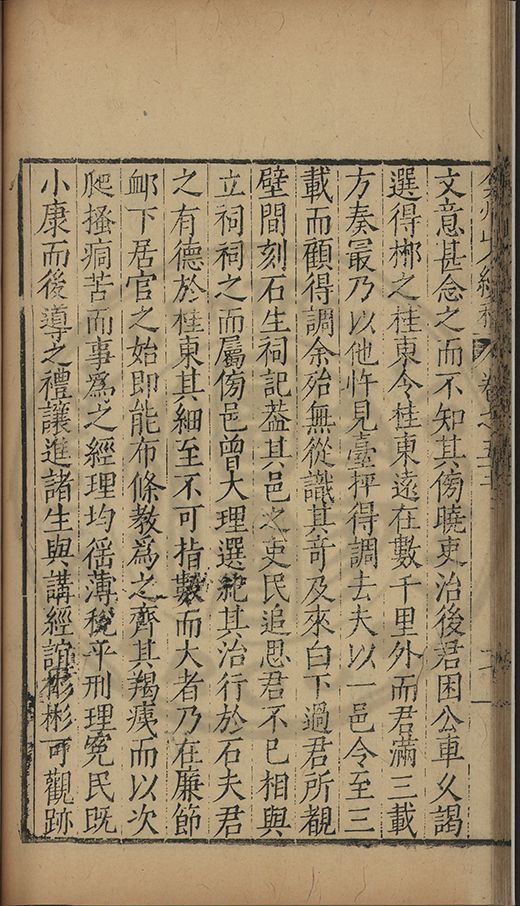 弇州山人續稿 卷之五十三
文意甚念之而不知其傍曉吏治後君困公車久謁
選得郴之桂東令桂東遠在數千里外而君滿三載
方奏最乃以他忤見臺抨得調去夫以一邑令至三
載而顧得調余殆無從識其奇及來白下過君所覩
壁間刻石生祠記葢其邑之吏民追思君不已相與
立祠祠之而屬傍邑曾大理選紀其治行於石夫君
之有德於桂東其細至不可指數而大者乃在廉節
邮下居官之始即能布條教爲之齊其羯羠而以次
爬搔痌苦而事爲之經理均徭薄稅平刑理寃民既
小康而後導之禮讓進諸生與講經誼彬彬可觀跡